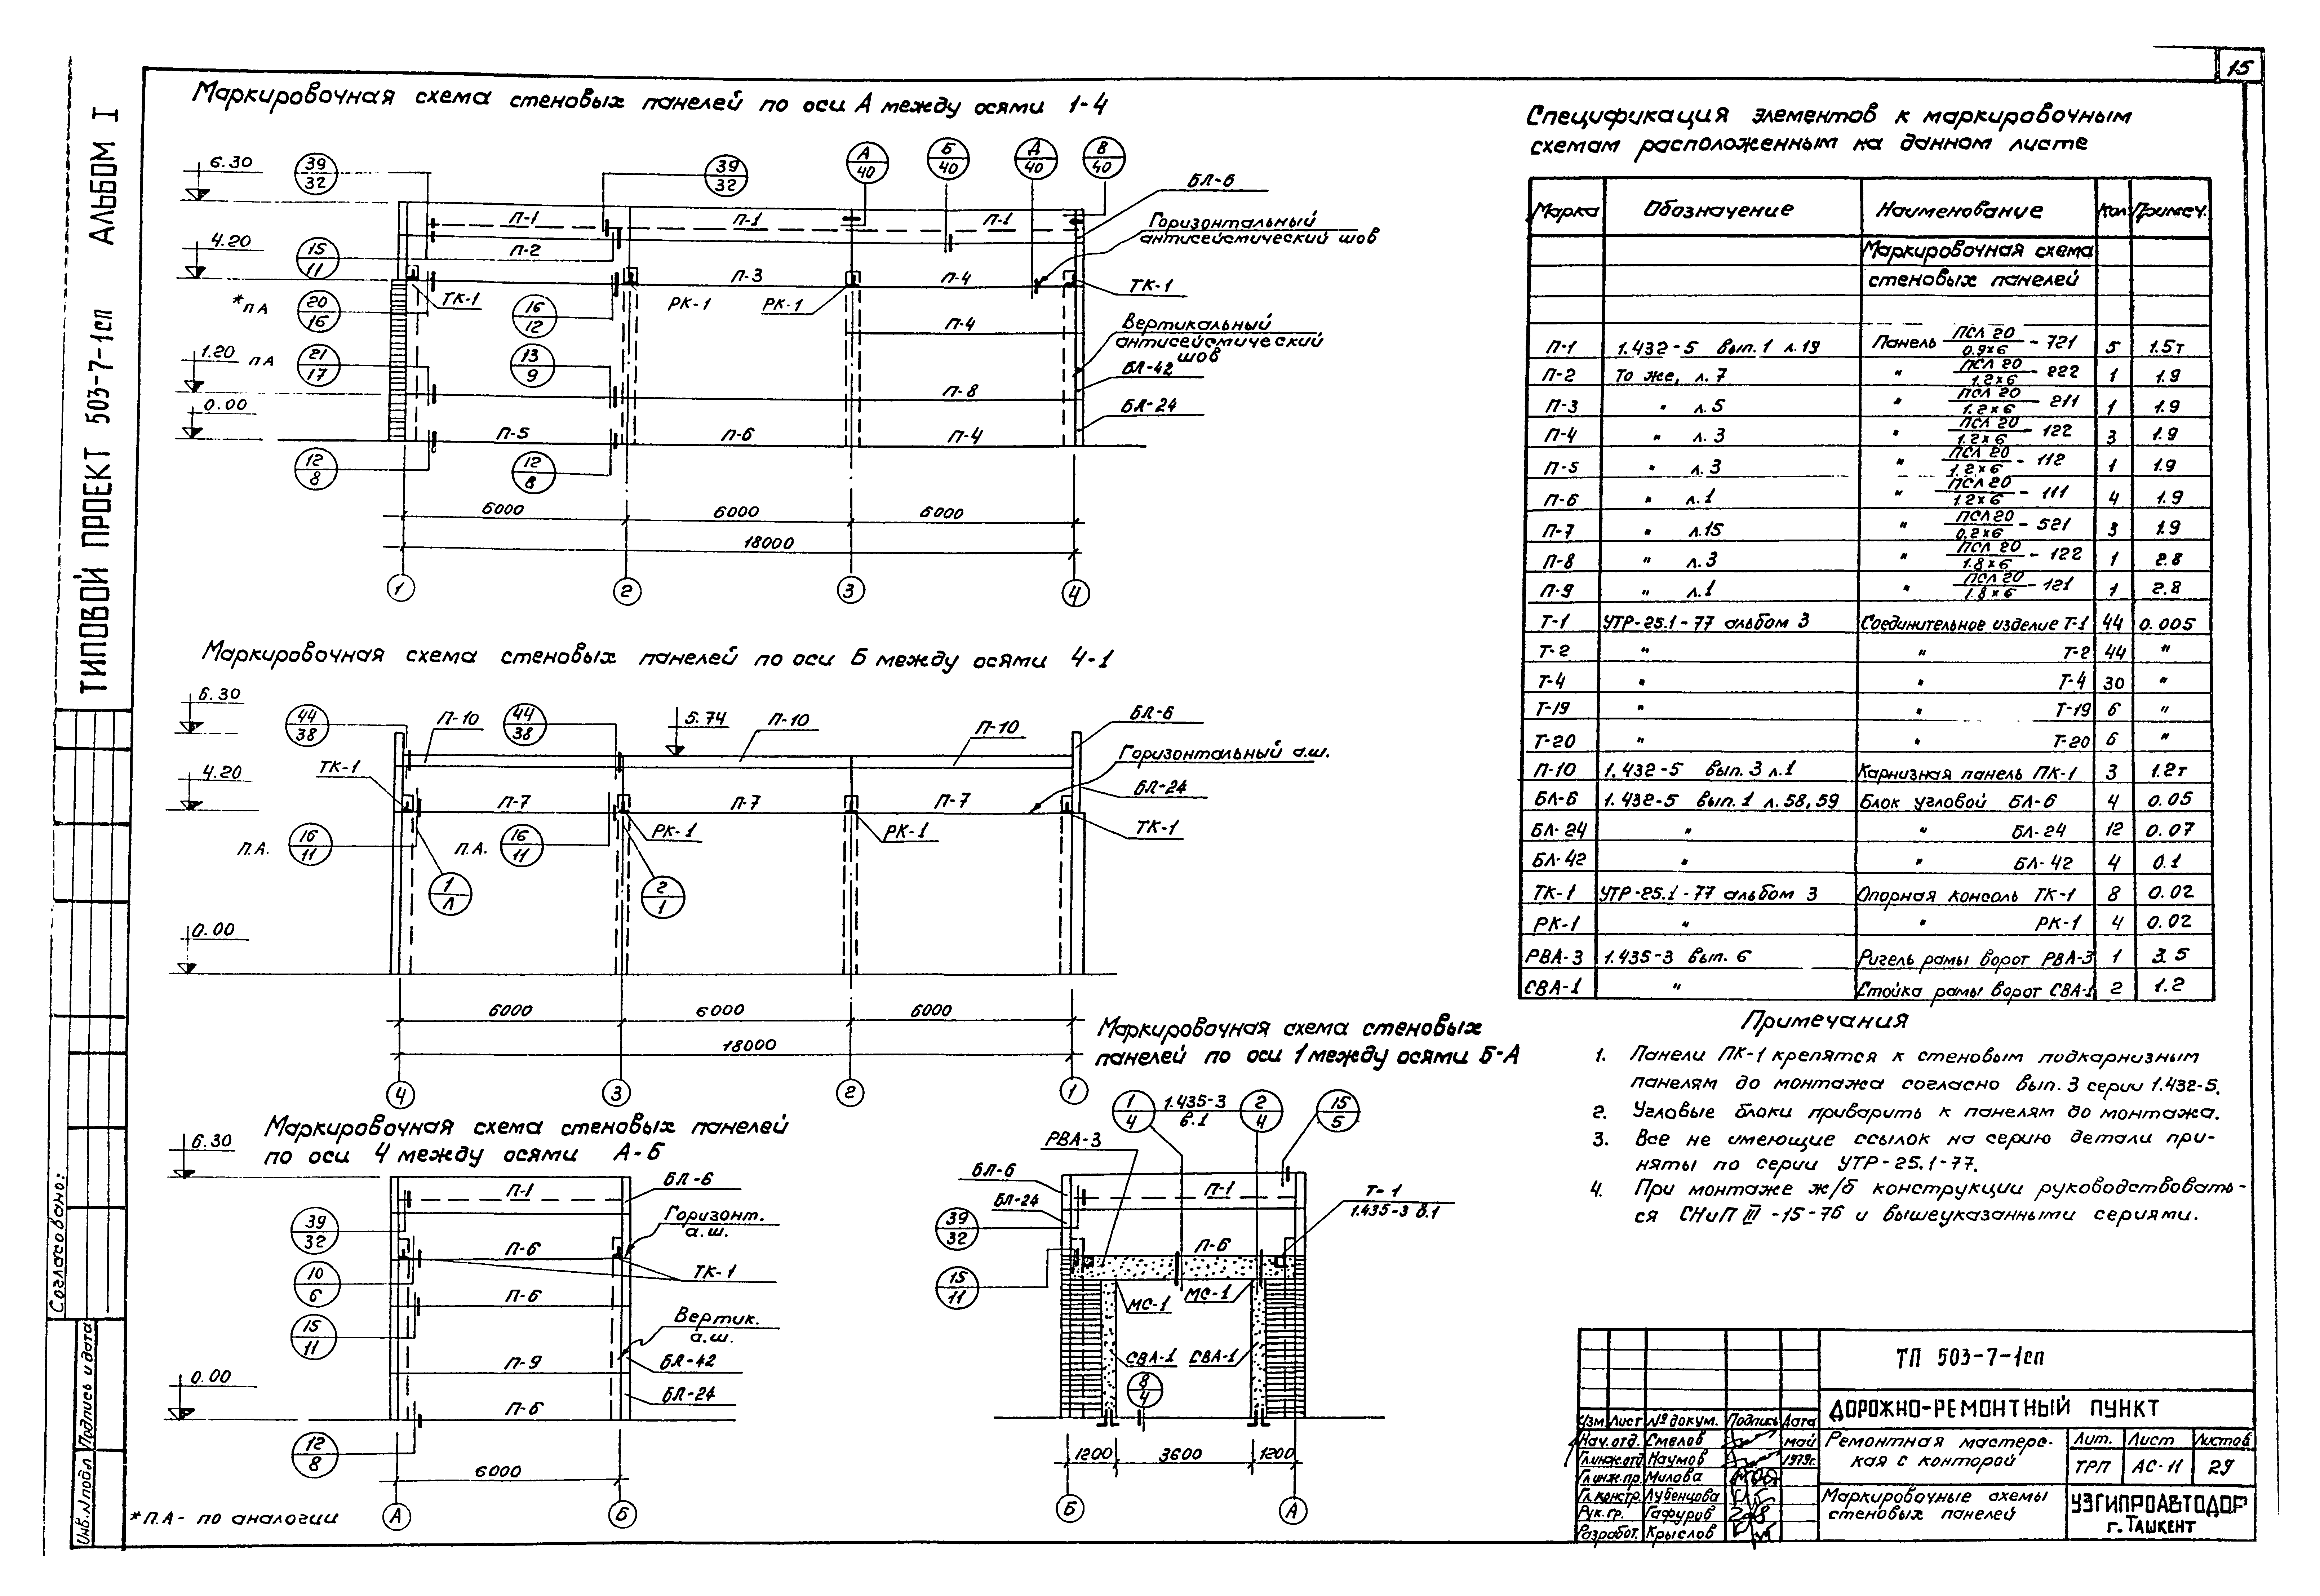 15
ТИПОВОЙ ПРОЕКТ 503-7-1сп АЛЬБОМ I
Согласовано:
Инв.№подл Подпись и дата
Маркировочная схема стеновых панелей по оси А между осями 1-4
6.30
4.20
1.20 пА
0.00
39
32
15
11
*пА
20
16
21
17
12
8
16
12
13
9
12
8
39
32
А
40
Б
40
Д
40
В
40
П-1 П-1 П-1
П-2 П-3 П-4
П-4
П-8
П-5 П-6 П-4
ТК-1 РК-1 РК-1 ТК-1
БЛ-6
Горизонтальный
антисейсмический шов
Вертикальный
антисейсмический
шов
БЛ-42
БЛ-24
6000 6000 6000
18000
1 2 3 4
Маркировочная схема стеновых панелей по оси Б между осями 4-1
6.30
4.20
0.00
5.74
44
38
44
38
П-10 П-10 П-10
БЛ-6
Горизонтальный а.ш.
БЛ-24
ТК-1
П-7 П-7 П-7
РК-1 РК-1 ТК-1
П.А. 16
11
П.А. 16
11
1
Л
2
1
6000 6000 6000
18000
4 3 2 1
Маркировочная схема стеновых панелей
по оси 4 между осями А-Б
6.30
0.00
39
32
10
6
15
11
12
8
П-1
П-6
П-6
П-9
П-6
БЛ-6
Горизонт.
а.ш.
ТК-1
Вертик.
а.ш.
БЛ-42
БЛ-24
6000
А Б
*П.А- по аналогии
Маркировочная схема стеновых
панелей по оси 1 между осями Б-А
1
4
1.435-3
в.1
2
4
15
5
РВА-3
БЛ-6
БЛ-24
39
32
15
11
П-1
П-6
Т-1
1.435-3 в.1
МС-1 МС-1
СВА-1 СВА-1
8
4
1200 3600 1200
Б А
Спецификация элементов к маркировочным
схемам расположенным на данном листе
Марка Обозначение Наименование Кол Примеч.
Маркировочная схема
стеновых панелей
П-1 1.432-5 вып.1 л.19 Панель ПСЛ 20/0.9×6 - 721 5 1.5т
П-2 То же, л.7 " ПСЛ 20/1.2×6 - 222 1 1.9
П-3 " л.5 " ПСЛ 20/1.2×6 - 211 1 1.9
П-4 " л.3 " ПСЛ 20/1.2×6 - 122 3 1.9
П-5 " л.3 " ПСЛ 20/1.2×6 - 112 1 1.9
П-6 " л.1 " ПСЛ 20/1.2×6 - 111 4 1.9
П-7 " л.15 " ПСЛ 20/0.2×6 - 521 3 1.9
П-8 " л.3 " ПСЛ 20/1.8×6 - 122 1 2.8
П-9 " л.1 " ПСЛ 20/1.8×6 - 121 1 2.8
Т-1 УТР-25.1-77 альбом 3 Соединительное изделие Т-1 44 0.005
Т-2 " " Т-2 44 "
Т-4 " " Т-4 30 "
Т-19 " " Т-19 6 "
Т-20 " " Т-20 6 "
П-10 1.432-5 вып.3 л.1 Карнизная панель ПК-1 3 1.2т
БЛ-6 1.432-5 вып.1 л.58,59 Блок угловой БЛ-6 4 0.05
БЛ-24 " " БЛ-24 12 0.07
БЛ-42 " " БЛ-42 4 0.1
ТК-1 УТР-25.1-77 альбом 3 Опорная консоль ТК-1 8 0.02
РК-1 " " РК-1 4 0.02
РВА-3 1.435-3 вып. 6 Ригель рамы ворот РВА-3 1 3.5
СВА-1 " Стойка рамы ворот СВА-1 2 1.2
Примечания
1. Панели ПК-1 крепятся к стеновым подкарнизным
панелям до монтажа согласно вып. 3 серии 1.432-5.
2. Угловые блоки приварить к панелям до монтажа.
3. Все не имеющие ссылок на серию детали при-
няты по серии УТР-25.1-77.
4. При монтаже ж/б конструкции руководствовать-
ся СНиП III -15-76 и вышеуказанными сериями.
ТП 503-7-1сп
ДОРОЖНО-РЕМОНТНЫЙ ПУНКТ
Изм Лист № докум. Подпись Дата
Нач.отд. Смелов май
Гл.инж.отд Наумов 1979г.
Гл.инж.пр. Милова
Гл.констр. Лубенцова
Рук.гр. Гафуров
Разработ. Крыслов
Ремонтная мастерс-
кая с конторой
Лит. Лист Листов
ТРП АС-11 29
Маркировочные схемы
стеновых панелей
УЗГИПРОАВТОДОР
г. ТАШКЕНТ